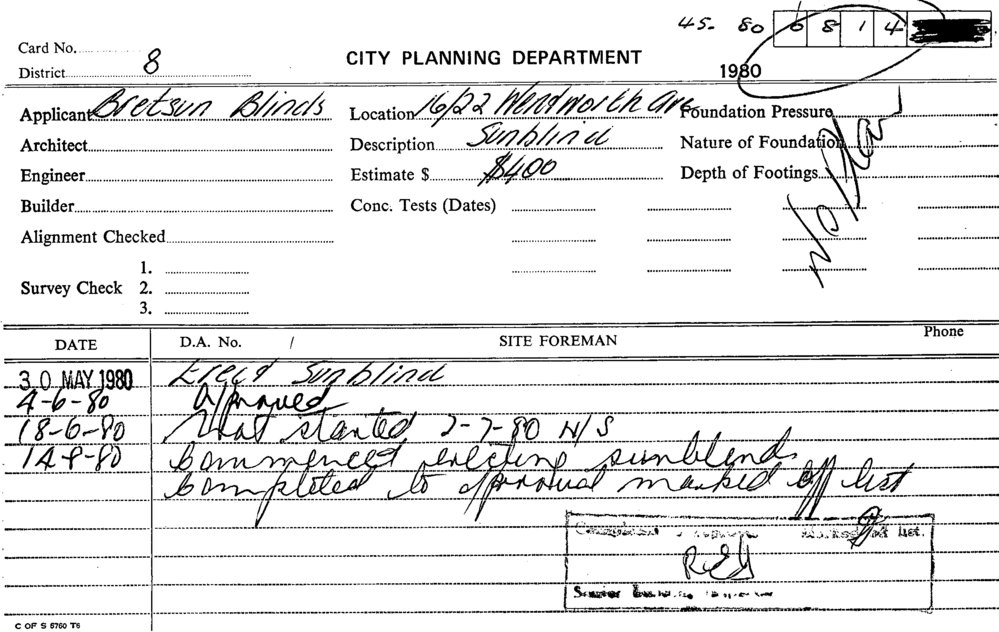 45- 80 6 8 1 4
Card No.
District 8
CITY PLANNING DEPARTMENT
1980
Applicant Bretsun Blinds
Location 16/22 Wentworth Ave
Foundation Pressure
Architect
Description Sunblind
Nature of Foundation
Engineer
Estimate $ $400
Depth of Footings
Builder
Conc. Tests (Dates)
N/O Plan
Alignment Checked
1.
Survey Check 2.
3.
DATE D.A. No. / SITE FOREMAN Phone
30 MAY 1980 Erect Sunblind
4-6-80 Approved
18-6-80 Not started 2-7-80 N/S
14-8-80 Commenced erecting sunblind
Completed to approval marked off list
Completed marked off list.
Senior
C OF S 5760 T6